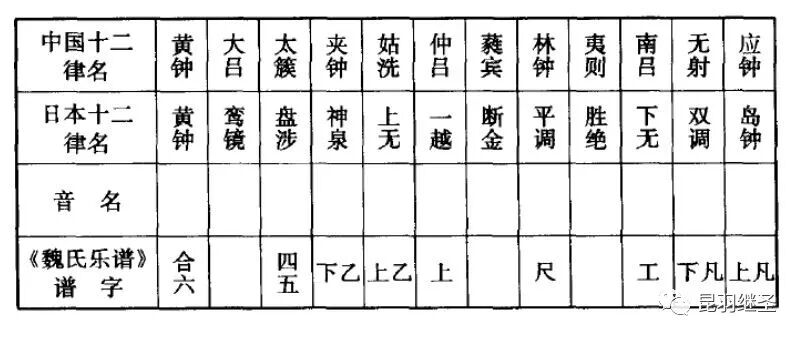 中国十二律名 黄钟 大吕 太簇 夹钟 姑洗 仲吕 蕤宾 林钟 夷则 南吕 无射 应钟
日本十二律名 黄钟 鸾镜 盘涉 神泉 上无 一越 断金 平调 胜绝 下无 双调 岛钟
音名
《魏氏乐谱》谱字 合六 四五 下乙 上乙 上 尺 工 下凡 上凡
昆羽继圣